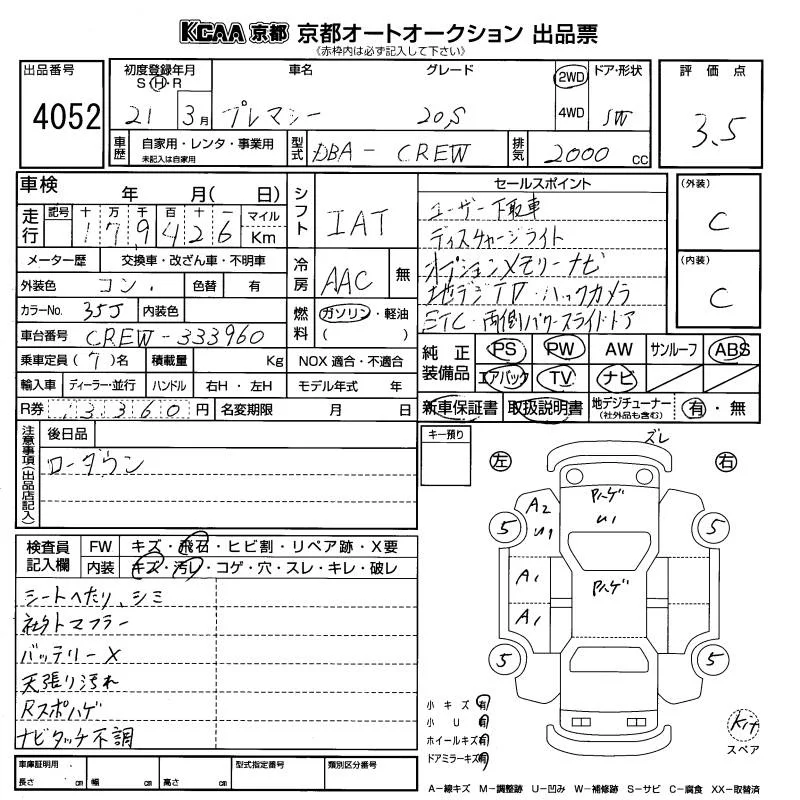 KCAA 京都 京都オートオークション 出品票
《赤枠内は必ず記入して下さい》
出品番号 4052
初度登録年月 S・H・R 21 3月
車名 プレマシー
グレード 20S
2WD 4WD
ドア・形状 SW
評価点 3.5
車歴 自家用・レンタ・事業用 未記入は自家用
型式 DBA-CREW
排気 2000 CC
車検 年 月( 日)
シフト IAT
走行 記号 十 万 千 百 十 一 マイル Km
179426
メーター歴 交換車・改ざん車・不明車
冷房 AAC 無
外装色 コン. 色替 有
カラーNo. 35J 内装色
燃料 ガソリン・軽油 ( )
車台番号 CREW-333960
乗車定員(7)名 積載量 Kg NOX 適合・不適合
輸入車 ディーラー・並行 ハンドル 右H・左H モデル年式 年
R券 13360円 名変期限 月 日
セールスポイント
ユーザー下取車
ディスチャージライト
オプションメモリーナビ
地デジTV・バックカメラ
ETC・両側パワースライドドア
(外装) C
(内装) C
純正装備品 PS PW AW サンルーフ ABS
エアバック TV ナビ
新車保証書 取扱説明書 地デジチューナー (社外品も含む) 有・無
注意事項(出品店記入)
後日品
ローダウン
キー預り
検査員記入欄
FW キズ・飛石・ヒビ割・リペア跡・X要
内装 キズ・汚レ・コゲ・穴・スレ・キレ・破レ
シートへたり、シミ
社外マフラー
バッテリーX
天張り汚れ
Rスポハゲ
ナビタッチ不調
左 右
ズレ
Pハゲ
U1
A2
U1
5 5
A1
Pハゲ
A1
5 5
小キズ 有
小U 有
ホイールキズ 有
ドアミラーキズ 有
Kit
スペア
車庫証明用 長さ cm 幅 cm 高さ cm
型式指定番号
類別区分番号
A-線キズ M-調整跡 U-凹み W-補修跡 S-サビ C-腐食 XX-取替済